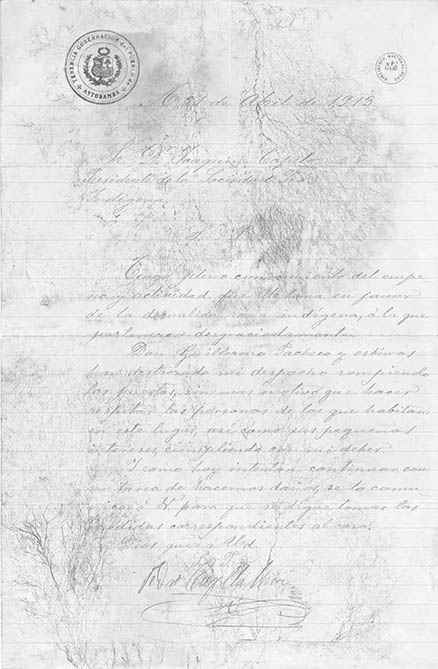 TENENCIA GOBERNACION del PUEBLO de
ATTOBAMBA
de Abril de 1913.
Sr. Dr. Joaquin Capelo
Presidente de la Sociedad Pro
Indígena
S. P.
Tengo pleno conocimiento del empe
ño y actividad que Ud toma en favor
de la desvalida raza indígena, a la que
pertenezco desgraciadamente.
Don Guillermo Pacheco y esbirros
han destrozado mi despacho rompiendo
las puertas, sin mas motivo que hacer
respetar las personas de los que habitan
en este lugar, así como sus pequeños
intereses, cumpliendo con mi deber.
I como hoy intentan continuar con
su tarea de hacernos daño, se lo comu
nico á U. para que se digne tomar las
medidas correspondientes al caso.
Dios gue. á Ud.